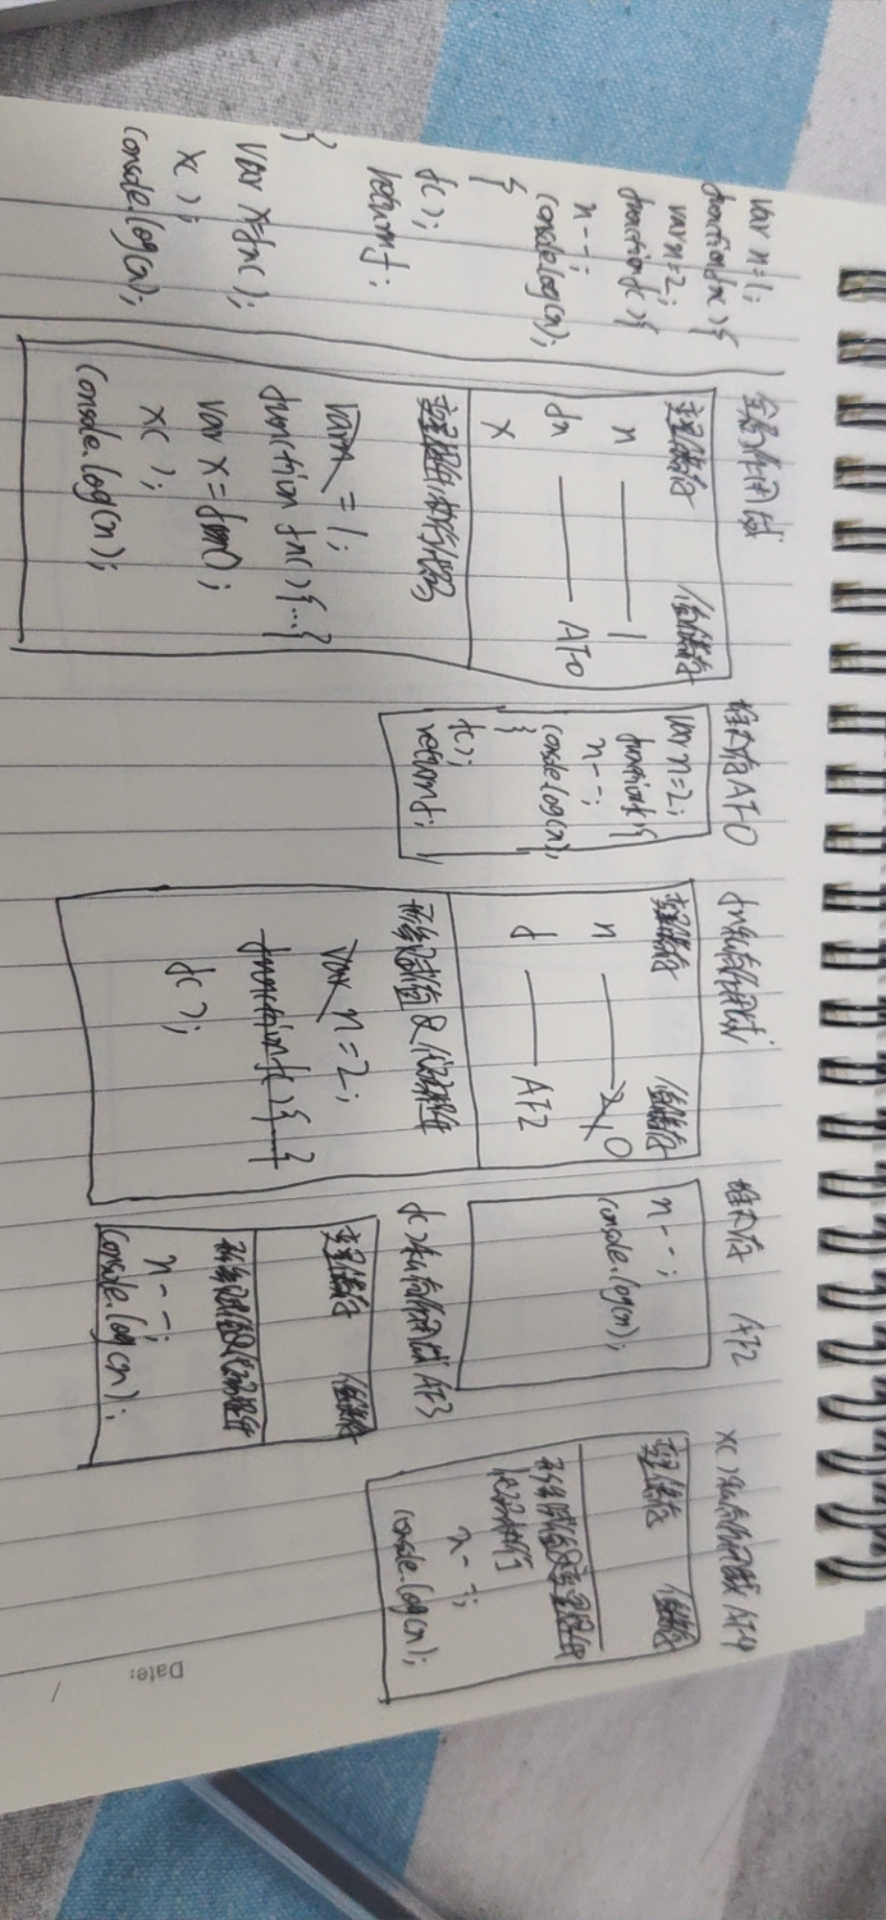 var n=1;
function fn(){
var n=2;
function f(){
n--;
console.log(n);
}
f();
return f;
}
var x=fn();
x();
console.log(n);
全局作用域
变量储存 值储存
n 1
fn AF0
x
变量提升 执行代码
var n = 1;
function fn(){...}
var x = fn();
x();
console.log(n);
堆内存AF0
var n=2;
function f(){
n--;
console.log(n);
}
f();
return f;
fn私有作用域
变量储存 值储存
n 2 1 0
f AF2
形参赋值及变量提升
var n=2;
function f(){...}
f();
堆内存 AF2
n--;
console.log(n);
f()私有作用域 AF3
变量储存 值储存
形参赋值及变量提升
n--;
console.log(n);
x()私有作用域 AF4
变量储存 值储存
形参赋值及变量提升
代码执行
n--;
console.log(n);
Date: /